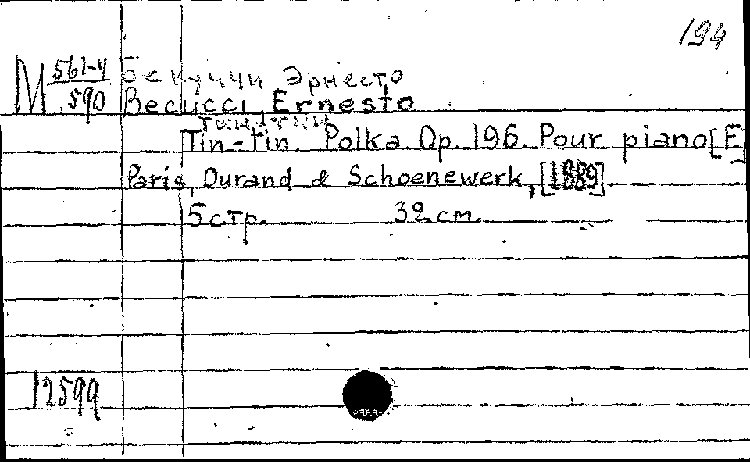 194
M 561-4
590
Бекуччи Эрнесто
Becucci Ernesto
Tin-tin. Polka Op. 196. Pour piano [F
Paris, Durand & Schoenewerk, [1889]
5 стр. 32 см.
12599